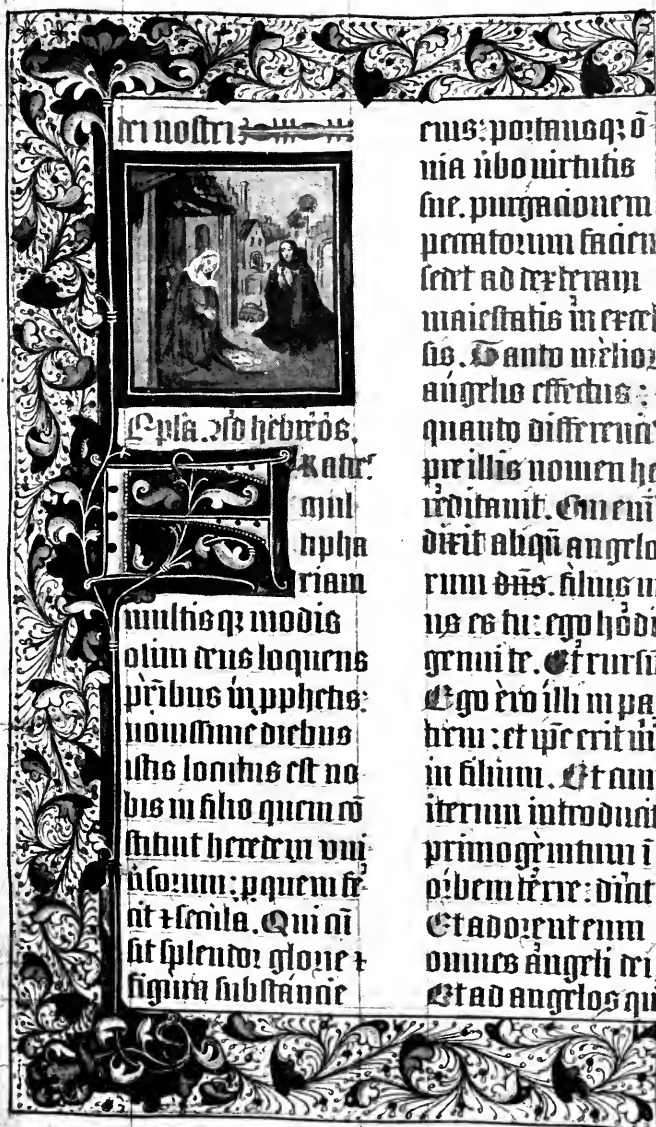 dei nostri
Epl̃a. ad hebreos.
Fratres
mul
tipha
riam
multisq; modis
olim deus loquens
pr̃ibus in ꝓphetis:
nouissime diebus
istis locutus est no
bis in filio quem cõ
stituit heredem vni
ũsorum: ꝑ quem fe
cit ⁊ secula. Qui cũ
sit splendor glorie ⁊
figura substancie
eius: portansq; õ
nia ũbo uirtutis
sue. purgacionem
peccatorum facien
sedet ad dexteram
maiestatis in excel
sis. Tanto melior
angelis effectus:
quanto differenci
pre illis nomen he
reditauit. Cui eni
dixit aliqñ angelo
rum dñs. filius m
us es tu: ego hodi
genui te. Et rursũ
Ego ero illi in pa
trem: et ip̃e erit mi
in filium. Et cum
iterum introducit
primogenitum ĩ
orbem terre: dicit
Et adorent eum
omnes angeli dei
Et ad angelos qui